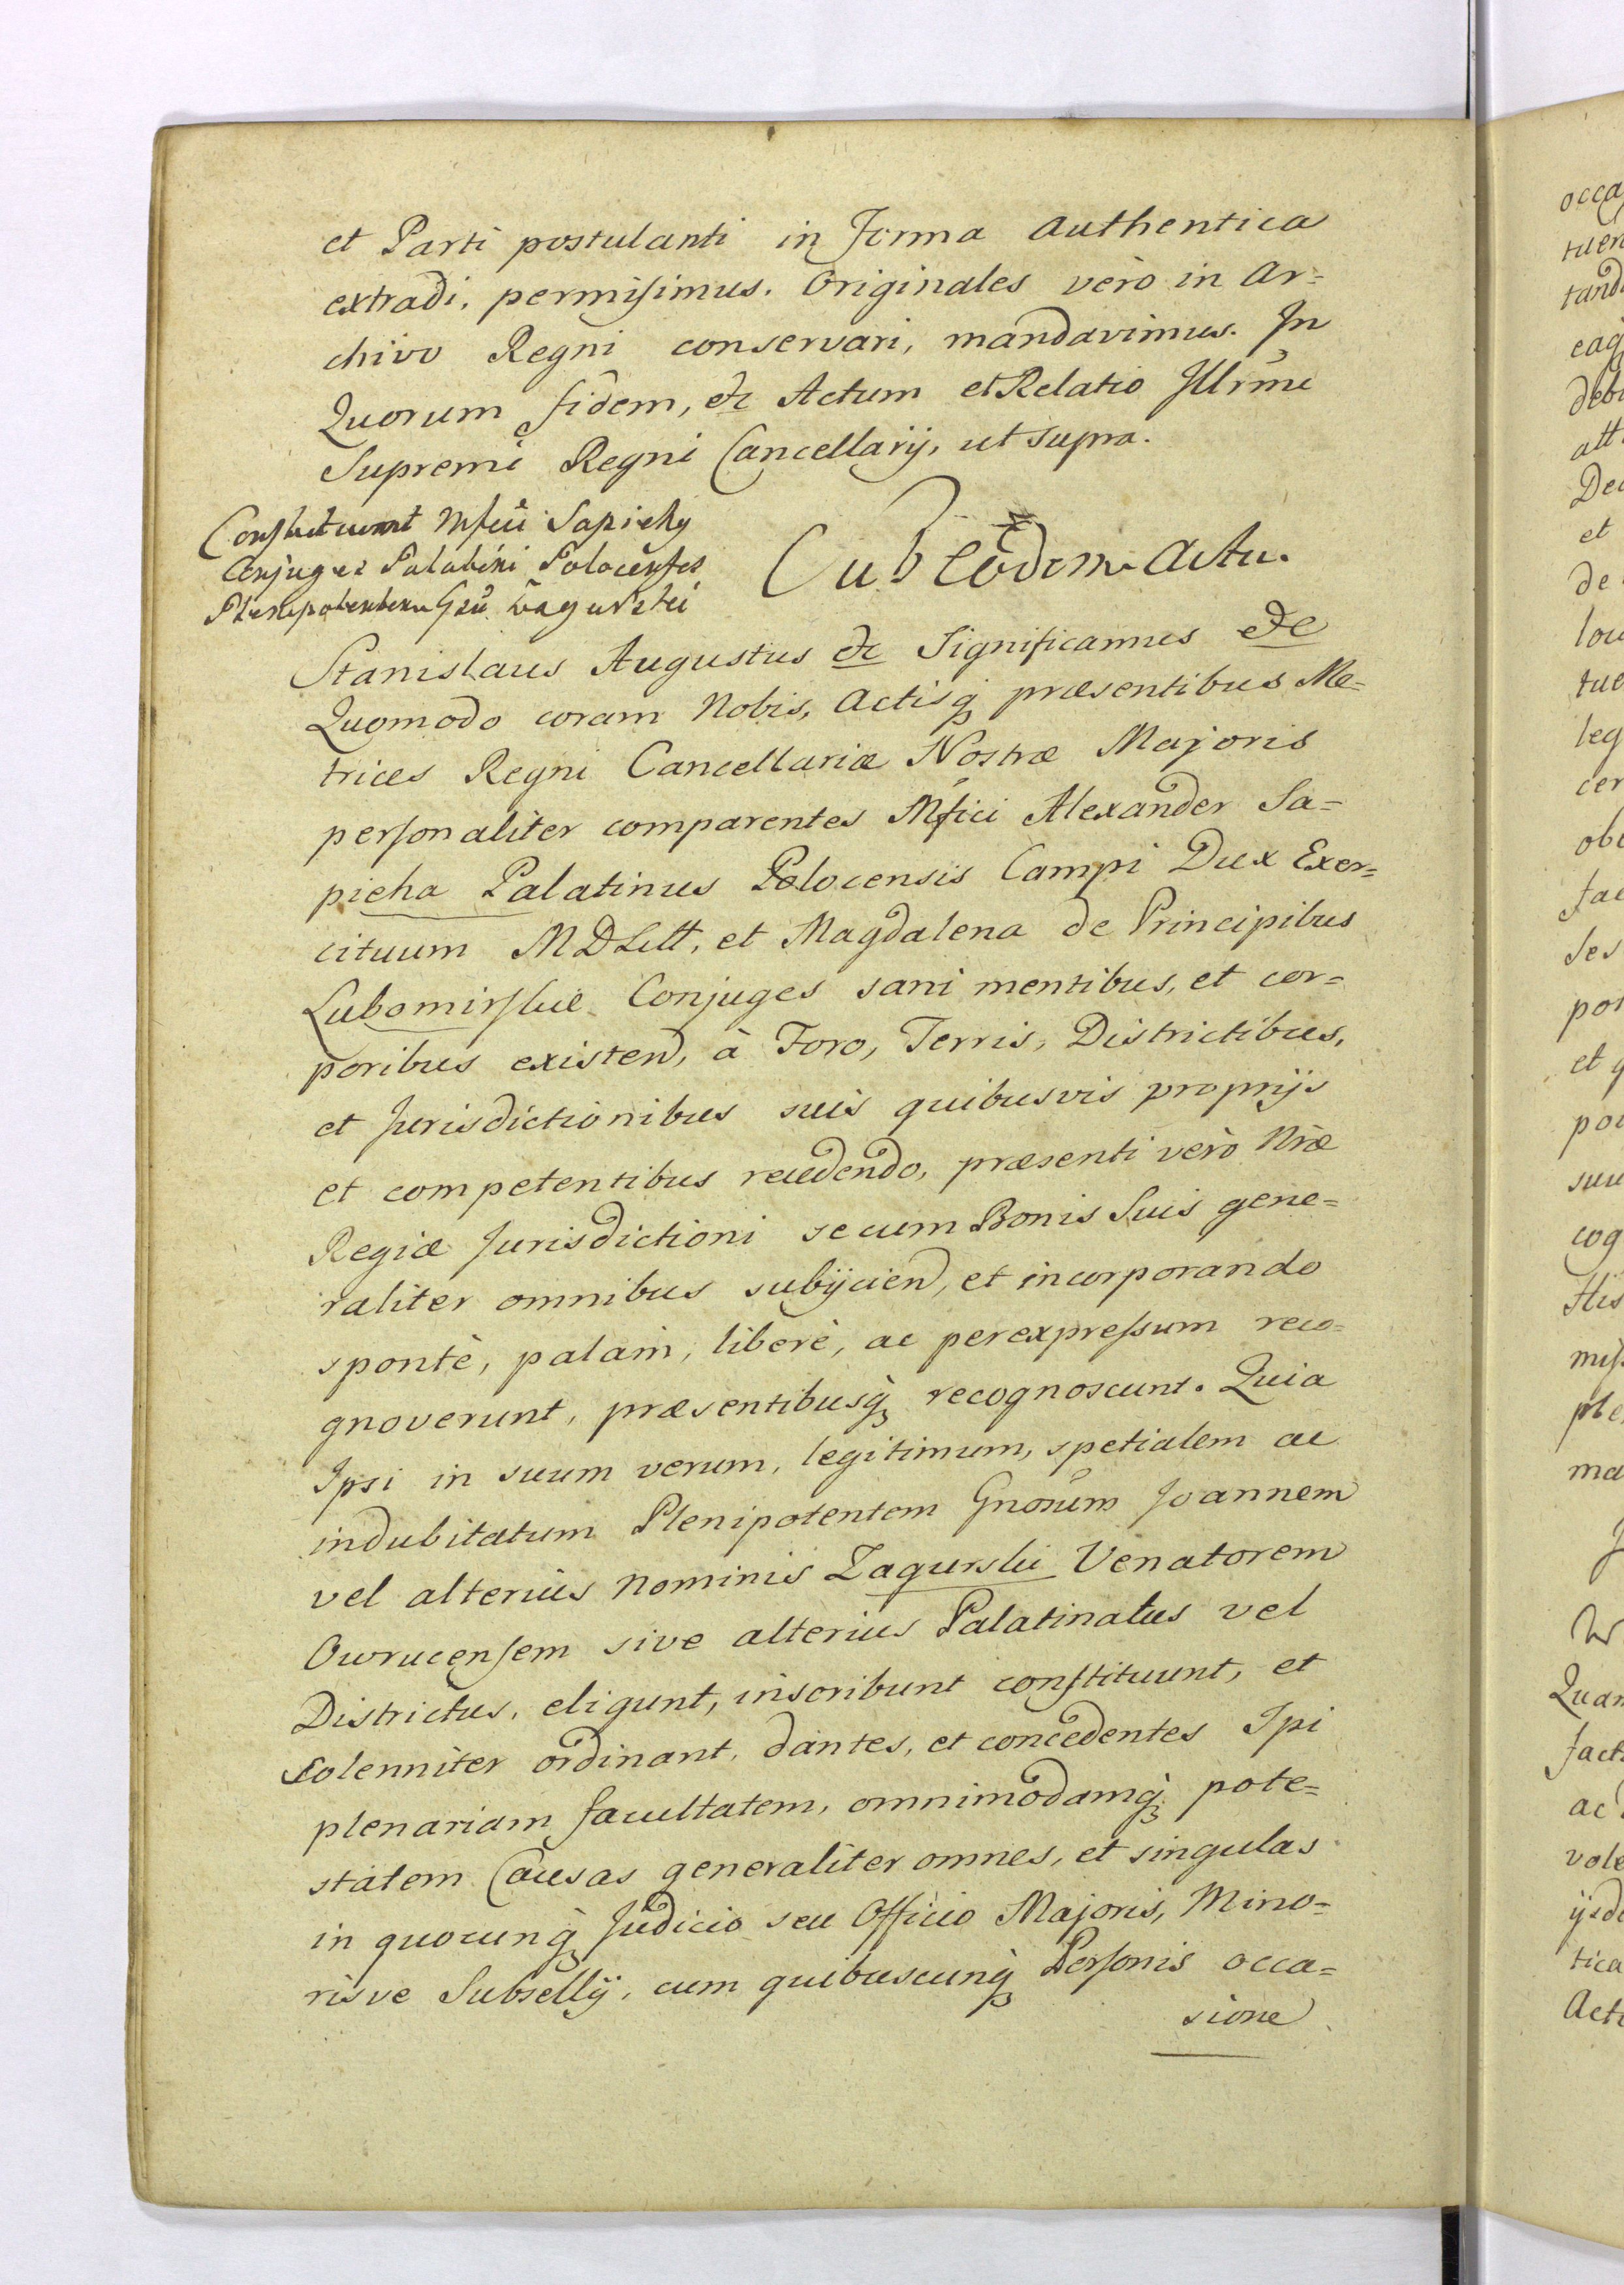 et Parti postulanti in Forma authentica
extradi, permisimus. Originales verò in Ar=
chivo Regni conservari, mandavimus. In
Quorum fidem, etc Actum et Relatio Illrmi
Supremi Regni Cancellarij, ut supra.
Constituunt Mfici Sapiehy
Conjuges Palatini Polocenses
Plenipotentem Gsū Zagurski
Sub eodem Actu.
Stanislaus Augustus etc Significamus etc
Quomodo coram Nobis, Actisq̃ præsentibus Me=
trices Regni Cancellariæ Nostræ Majoris
personaliter comparentes Mfici Alexander Sa=
pieha Palatinus Polocensis Campi Dux Exer=
cituum MDLitt, et Magdalena de Principibus
Lubomirskie Conjuges sani mentibus, et cor=
poribus existen, à Foro, Terris, Districtibus,
et Jurisdictionibus suis quibusvis proprijs
et competentibus recedendo, præsenti verò Nræ
Regiæ Jurisdictioni se cum Bonis Suis gene=
raliter omnibus subijcien, et incorporando
spontè, palàm, liberè, ac per expressum reco=
gnoverunt, præsentibusq̃ recognoscunt. Quia
Ipsi in suum verum, legitimum, spetialem ac
indubitatum Plenipotentem Gnosum Joannem
vel alteriùs Nominis Zagurski Venatorem
Owrucensem sive alterius Palatinatus vel
Districtus, eligunt, inscribunt constituunt, et
solenniter ordinant, dantes, et concedentes Ipi
plenariam facultatem, omnimodamq̃ pote=
statem Causas generaliter omnes, et singulas
in quocunq̃ Judicio seu Officio Majoris, Mino=
risve Subsellij, cum quibuscunq̃ Personis occa=
sione